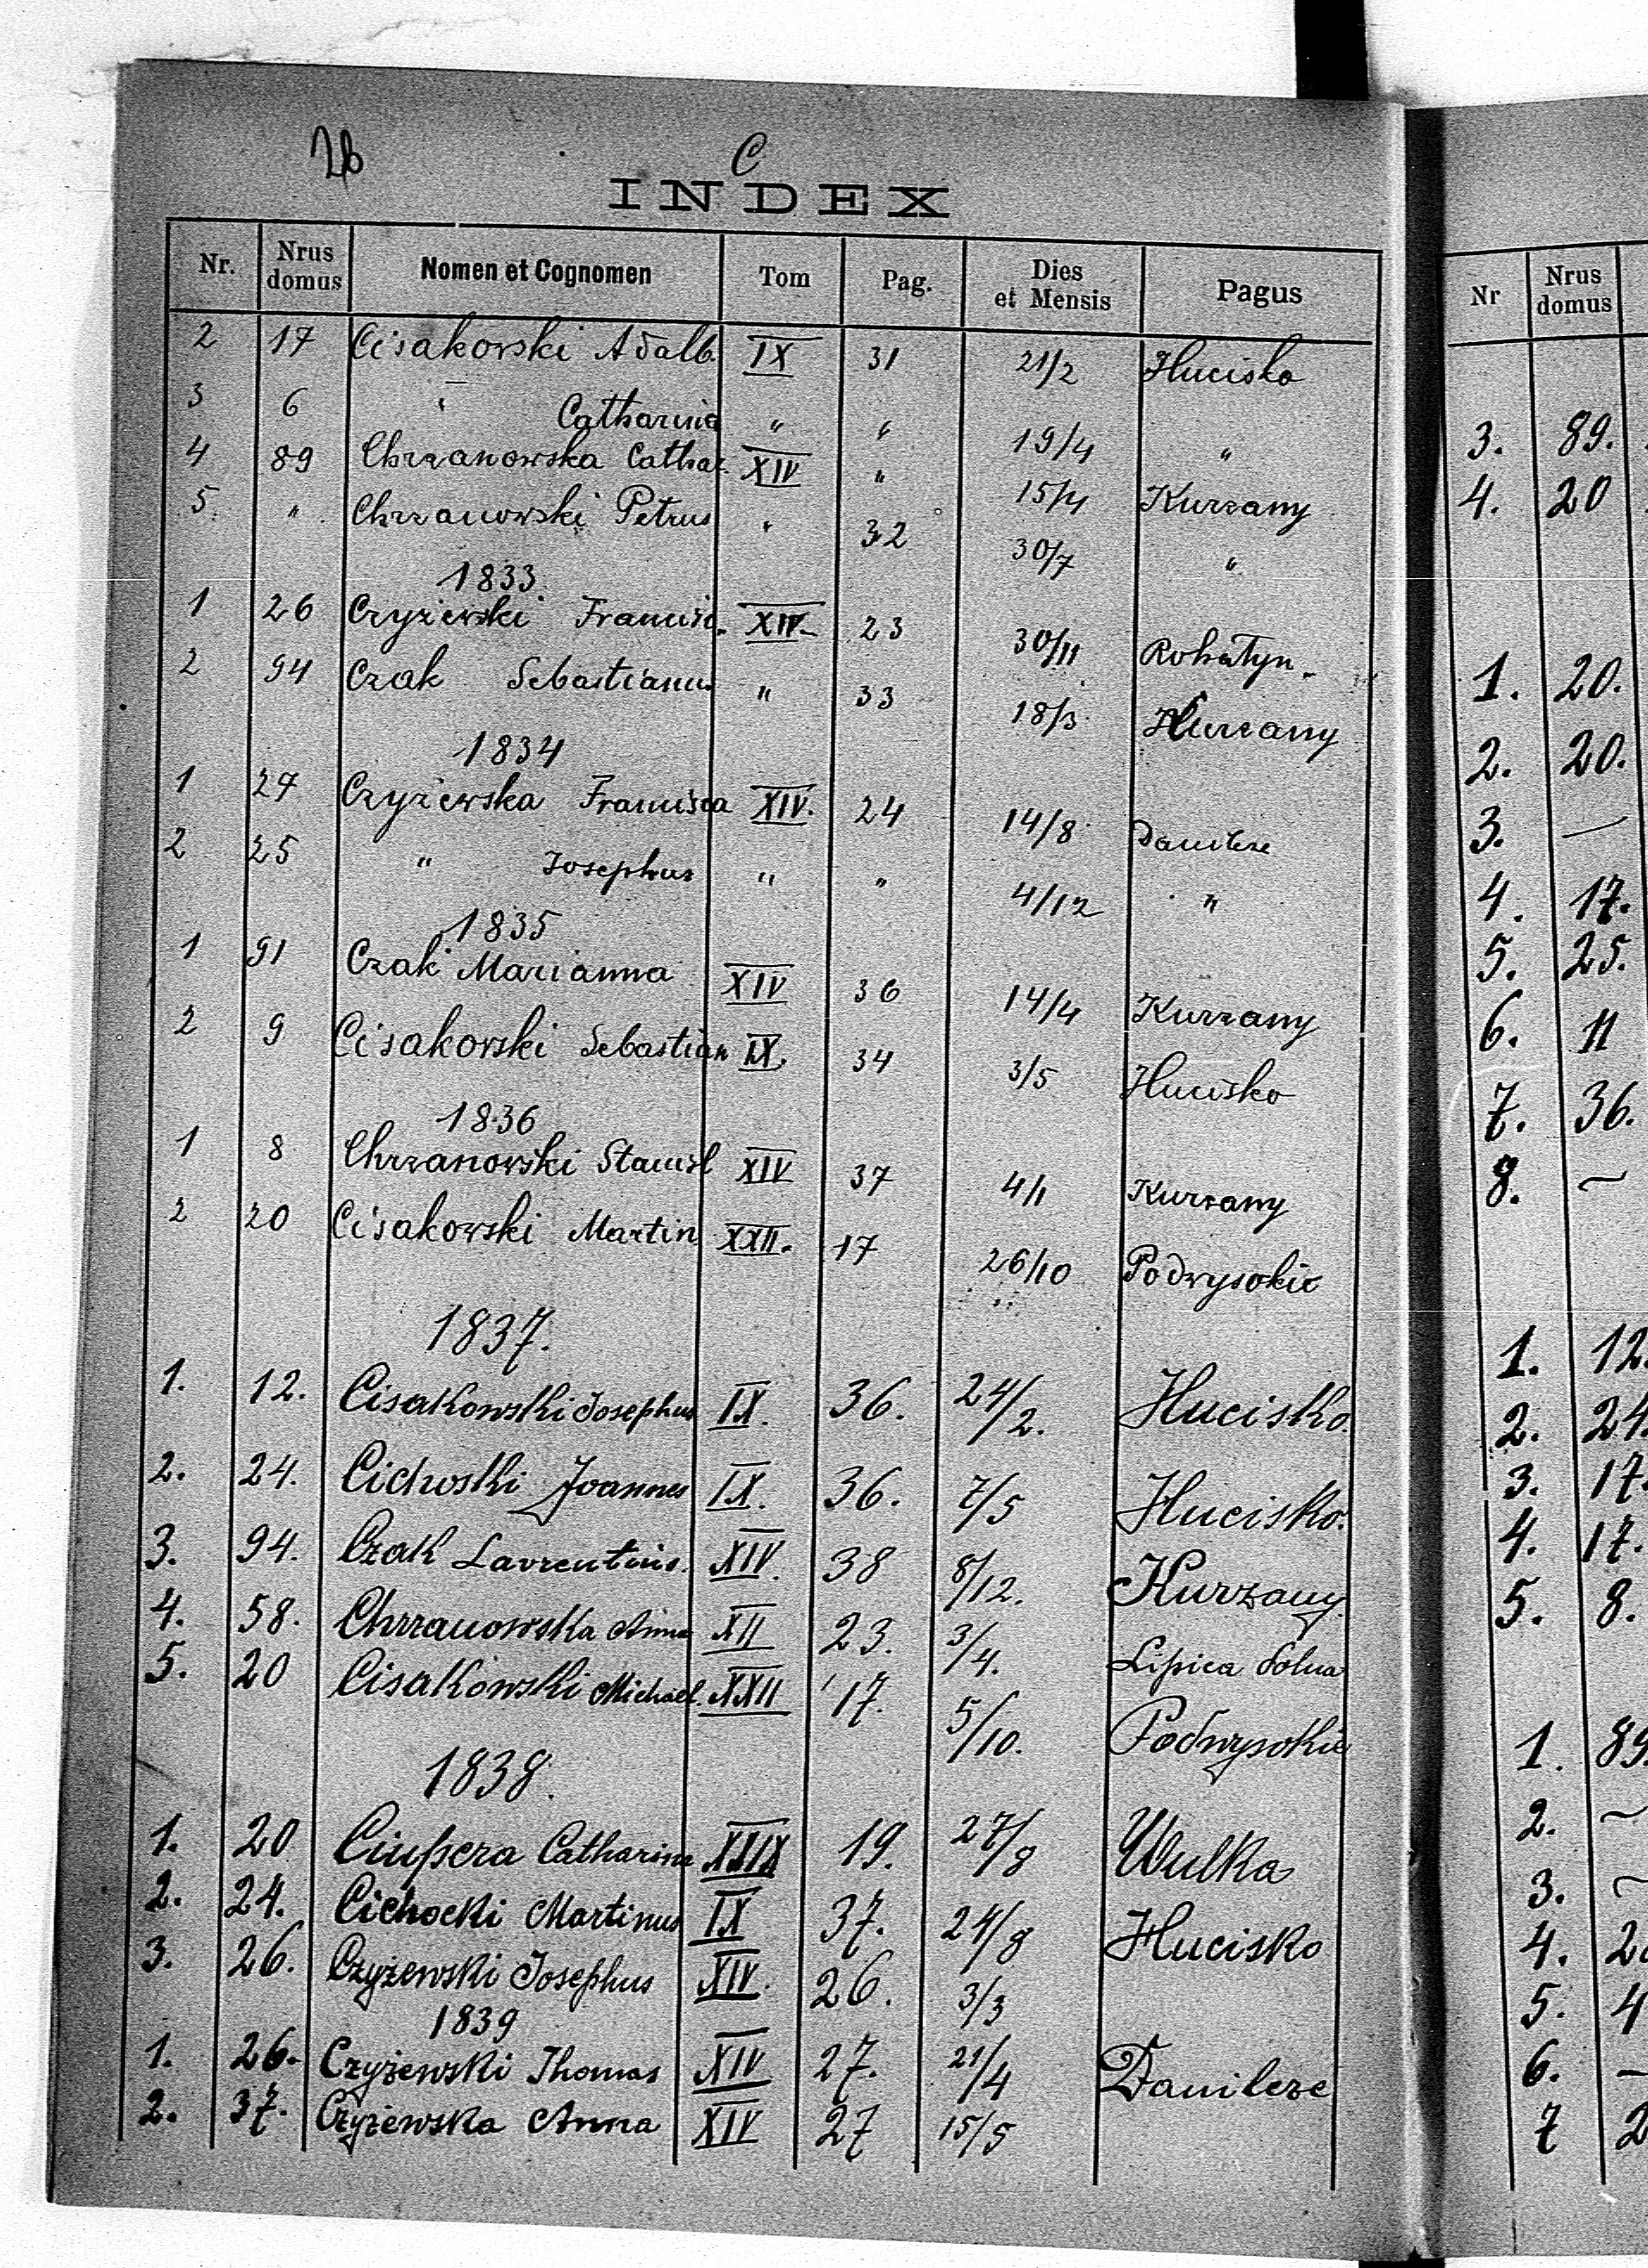 26
C
INDEX
Nr. Nrus domus Nomen et Cognomen Tom Pag. Dies et Mensis Pagus
2 17 Cisakowski Adalb. IX 31 21/2 Hucisko
3 6 " Catharina " " 19/4 "
4 89 Chrzanowska Cathar. XIV " 15/4 Kurzany
5. " Chrzanowski Petrus " 32 30/7 "
1833.
1 26 Czyżewski Francisc. XIV 23 30/11 Rohatyn
2 94 Czak Sebastianus " 33 18/3 Kurzany
1834
1 27 Czyżewska Francisca XIV. 24 14/8 Danilcze
2 25 " Josephus " " 4/12 "
1835
1 91 Czak Marianna XIV 36 14/4 Kurzany
2 9 Cisakowski Sebastian IX. 34 3/5 Hucisko
1836
1 8 Chrzanowski Stanisl XIV 37 4/1 Kurzany
2 20 Cisakowski Martin XXII. 17 26/10 Podwysokie
1837.
1. 12. Cisakowski Josephus IX. 36. 24/2. Hucisko.
2. 24. Cichoski Joannes IX. 36. 7/5 Hucisko.
3. 94. Czak Lavrentius. XIV. 38 8/12. Kurzany
4. 58. Chrzanowska Anna XII 23. 3/4. Lipica dolna
5. 20 Cisakowski Michael. XXII 17. 5/10. Podwysokie
1838.
1. 20 Ciupsera Catharina XXIX 19. 27/8 Wulka
2. 24. Cichocki Martinus IX 37. 24/8 Hucisko
3. 26. Czyżewski Josephus XIV. 26. 3/3
1839
1. 26. Czyżewski Thomas XIV 27. 21/4 Danilcze
2. 37. Czyżewska Anna XIV 27 15/5
Nr Nrus domus
3. 89.
4. 20
1. 20.
2. 20.
3. —
4. 17.
5. 25.
6. 11
7. 36.
8. —
1. 12.
2. 24.
3. 17.
4. 17.
5. 8.
1. 89
2. —
3. —
4. 2
5. 4
6. —
7 2